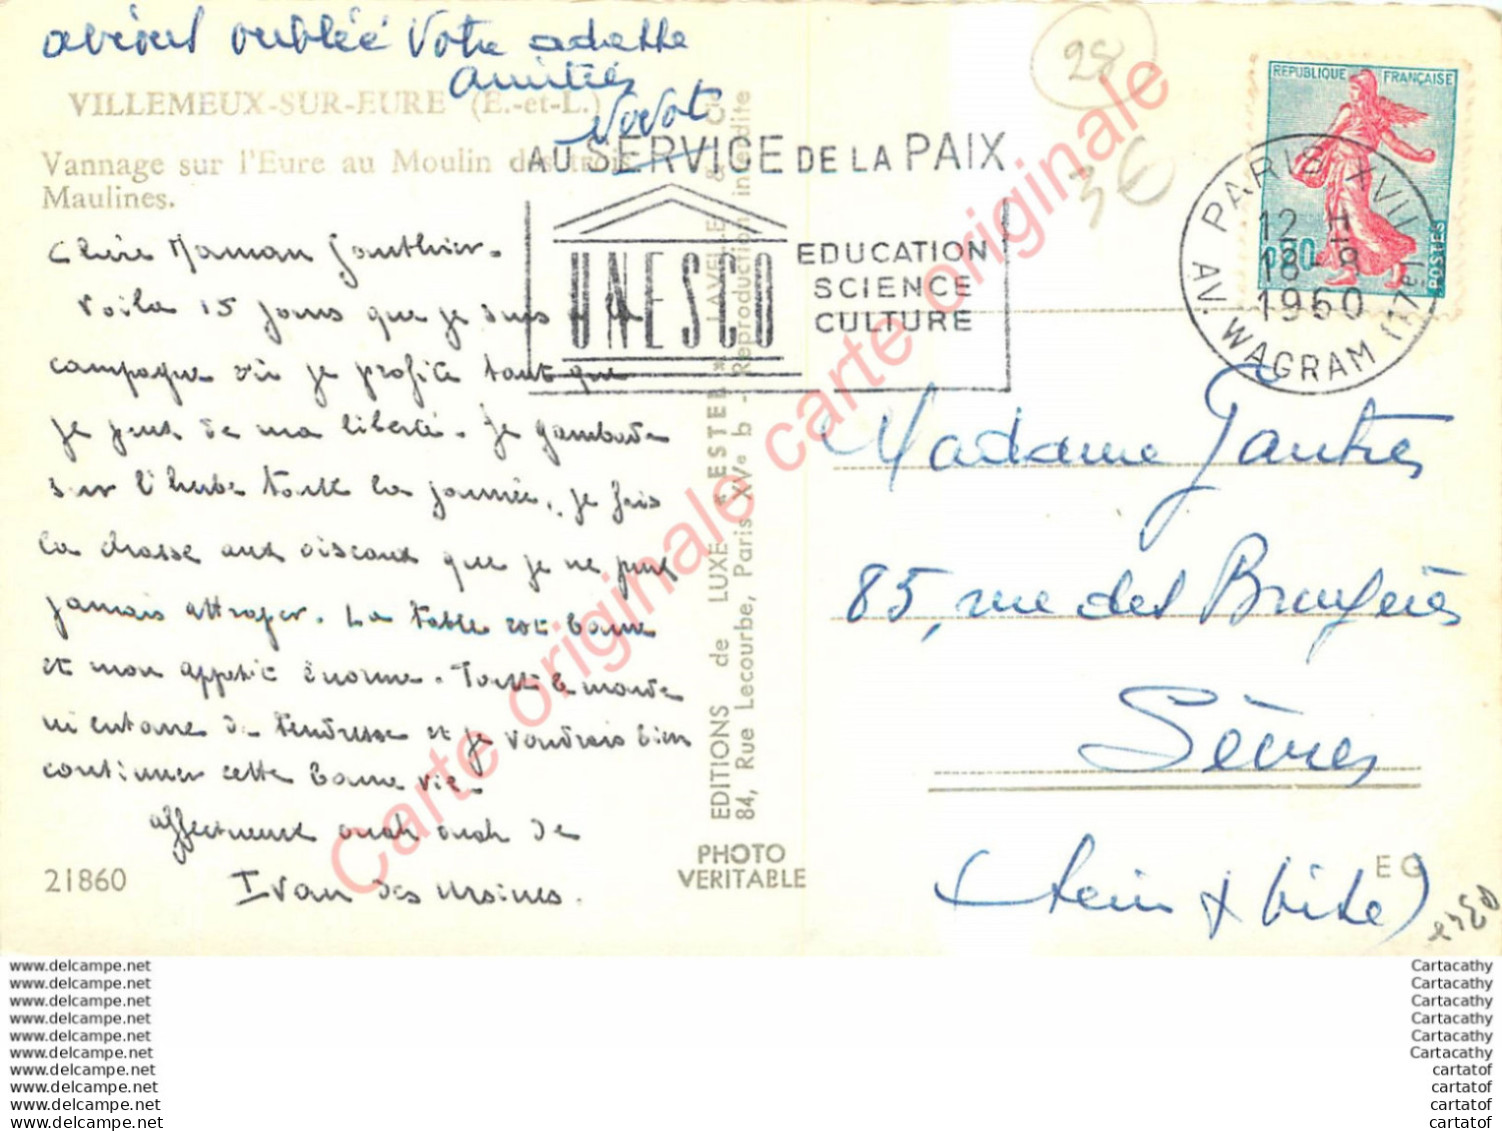 avions oublié votre adresse
amitiés
VILLEMEUX-SUR-EURE (E.-et-L.)
Vannage sur l'Eure au Moulin des trois
Maulines.
Chère Maman Gauthier.
Voila 15 jours que je suis à la
campagne où je profite tant que
je peux de ma liberté. Je gambade
sur l'herbe toute la journée, je fais
la chasse aux oiseaux que je ne peux
jamais attraper. La table est bonne
et mon appetit énorme. Tout le monde
m'entoure de tendresse et je voudrais bien
continuer cette bonne vie.
affectueux ouah ouah de
Ivan des Ursines.
21860
EDITIONS de LUXE "ESTEL" LAVELLE & Cie
84, Rue Lecourbe, Paris XVe b - Reproduction interdite
PHOTO
VERITABLE
28
3€
AU SERVICE DE LA PAIX
UNESCO
EDUCATION
SCIENCE
CULTURE
REPUBLIQUE FRANÇAISE
0,20
POSTES
PARIS XVII
12 H
18-8
1960
AV. WAGRAM (17e)
Madame Gautier
85, rue des Bruyères
Sèvres
(Seine & Oise)
E G
Carte originale carte originale carte originale
www.delcampe.net
www.delcampe.net
www.delcampe.net
www.delcampe.net
www.delcampe.net
www.delcampe.net
www.delcampe.net
www.delcampe.net
www.delcampe.net
www.delcampe.net
Cartacathy
Cartacathy
Cartacathy
Cartacathy
Cartacathy
Cartacathy
cartatof
cartatof
cartatof
cartatof